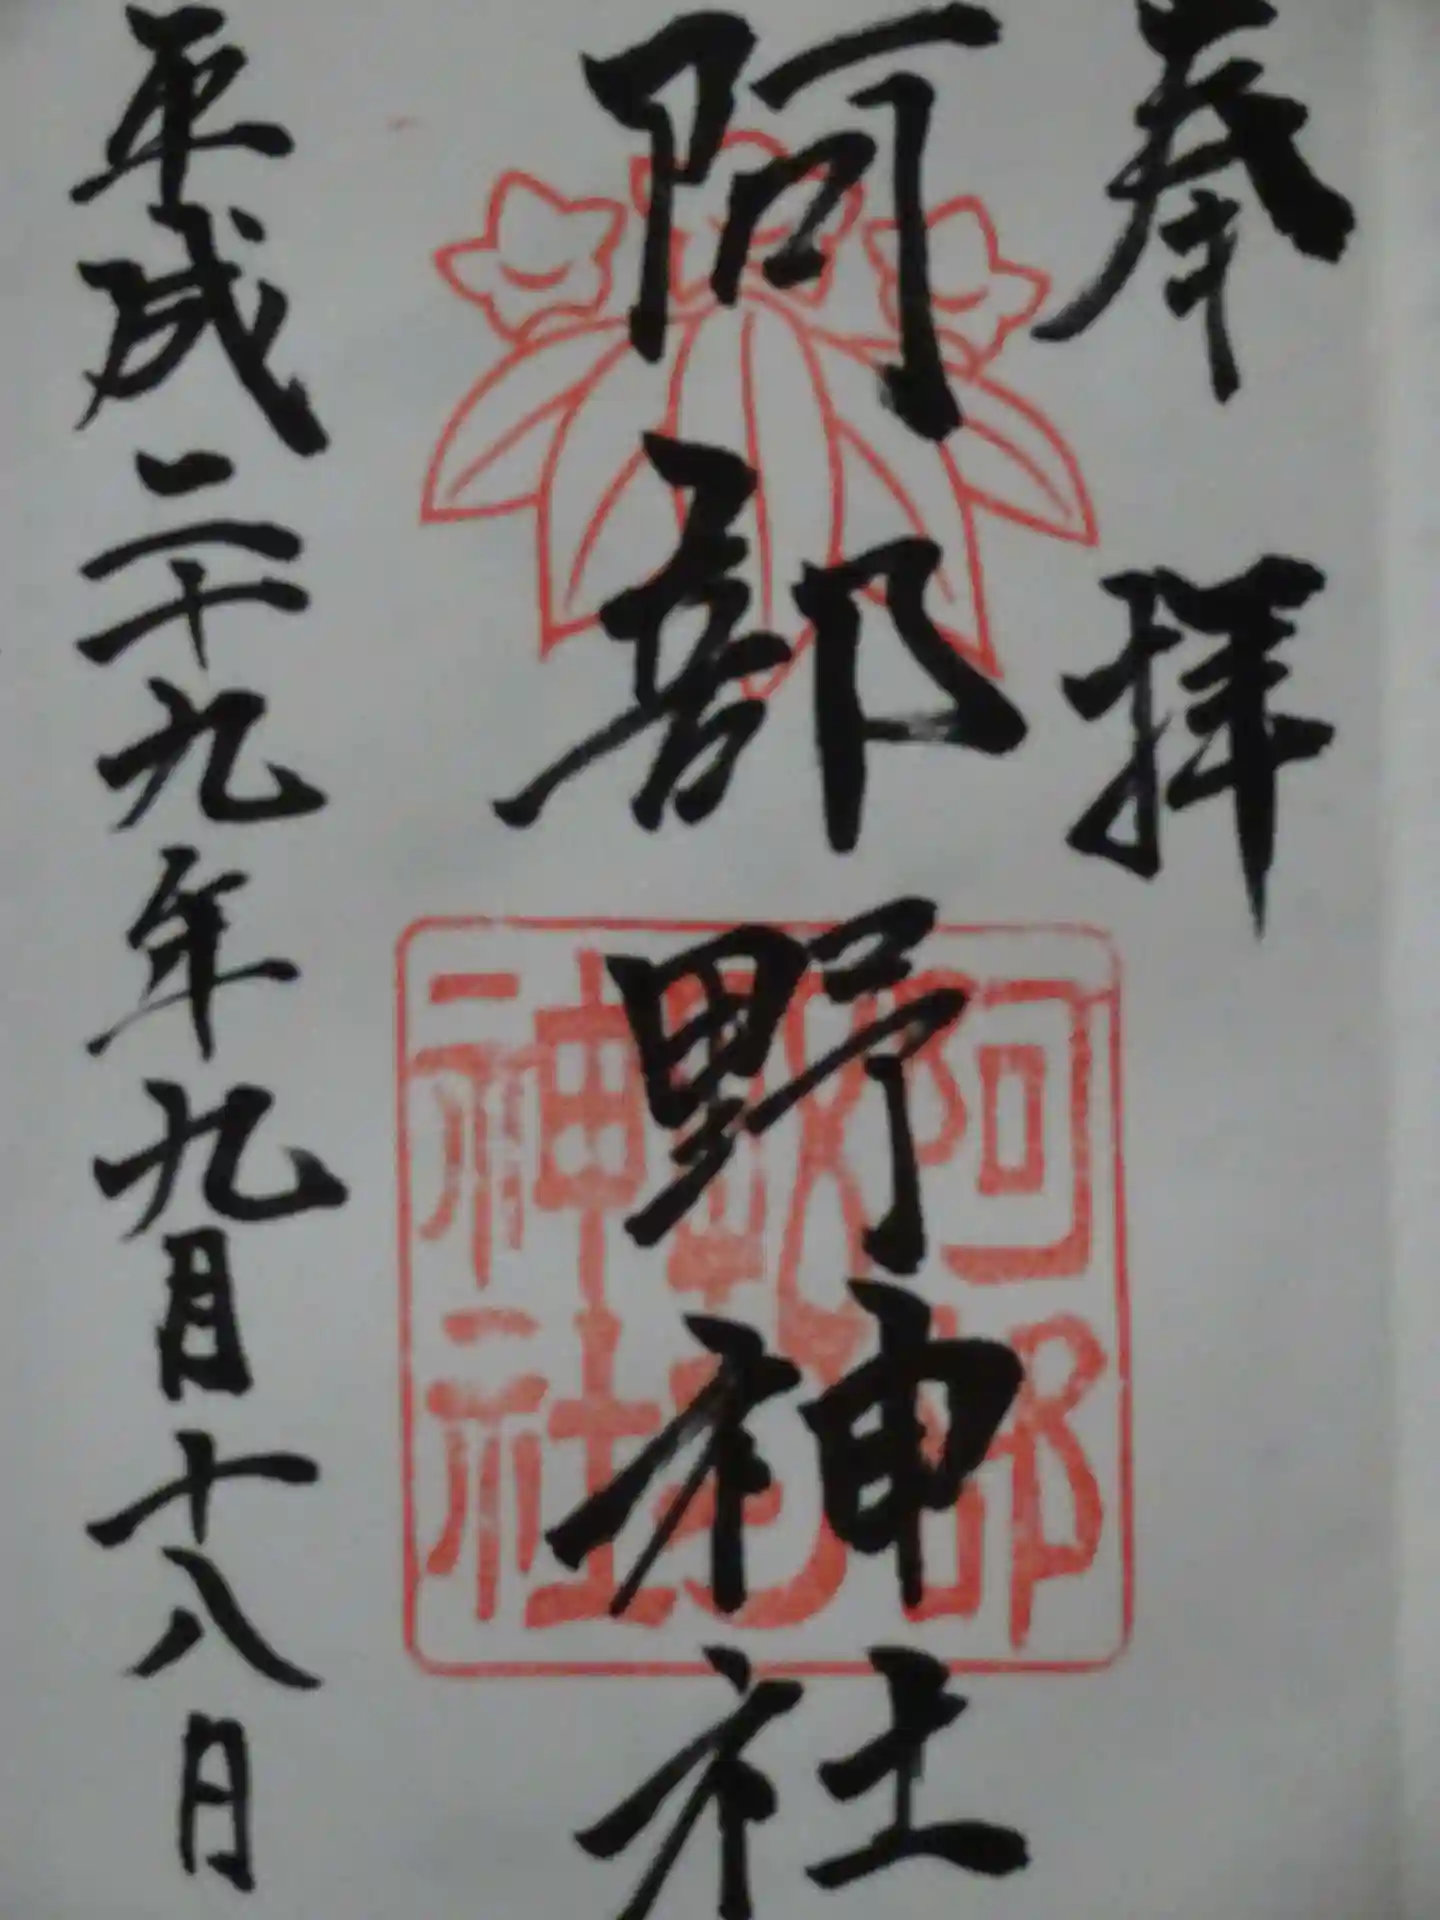 奉拝
阿部野神社
平成二十九年九月十八日
阿部
野
神社